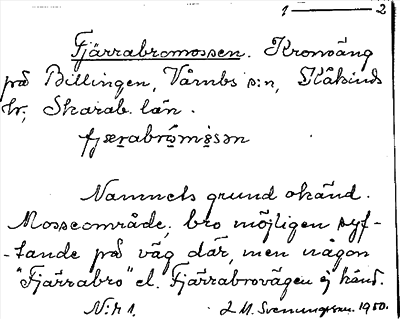 1 — 2
Fjärrabromossen. Kronoäng
på Billingen, Vårnbs s:n, Kåkinds
hr; Skarab. län.
fjærabrømåsən
Namnets grund okänd.
Mosseområde; bro möjligen syf-
-tande på väg där, men någon
"Fjärrabro" el. Fjärrabrovägen ej känd.
N:r 1. L M. Svenungsson. 1950.